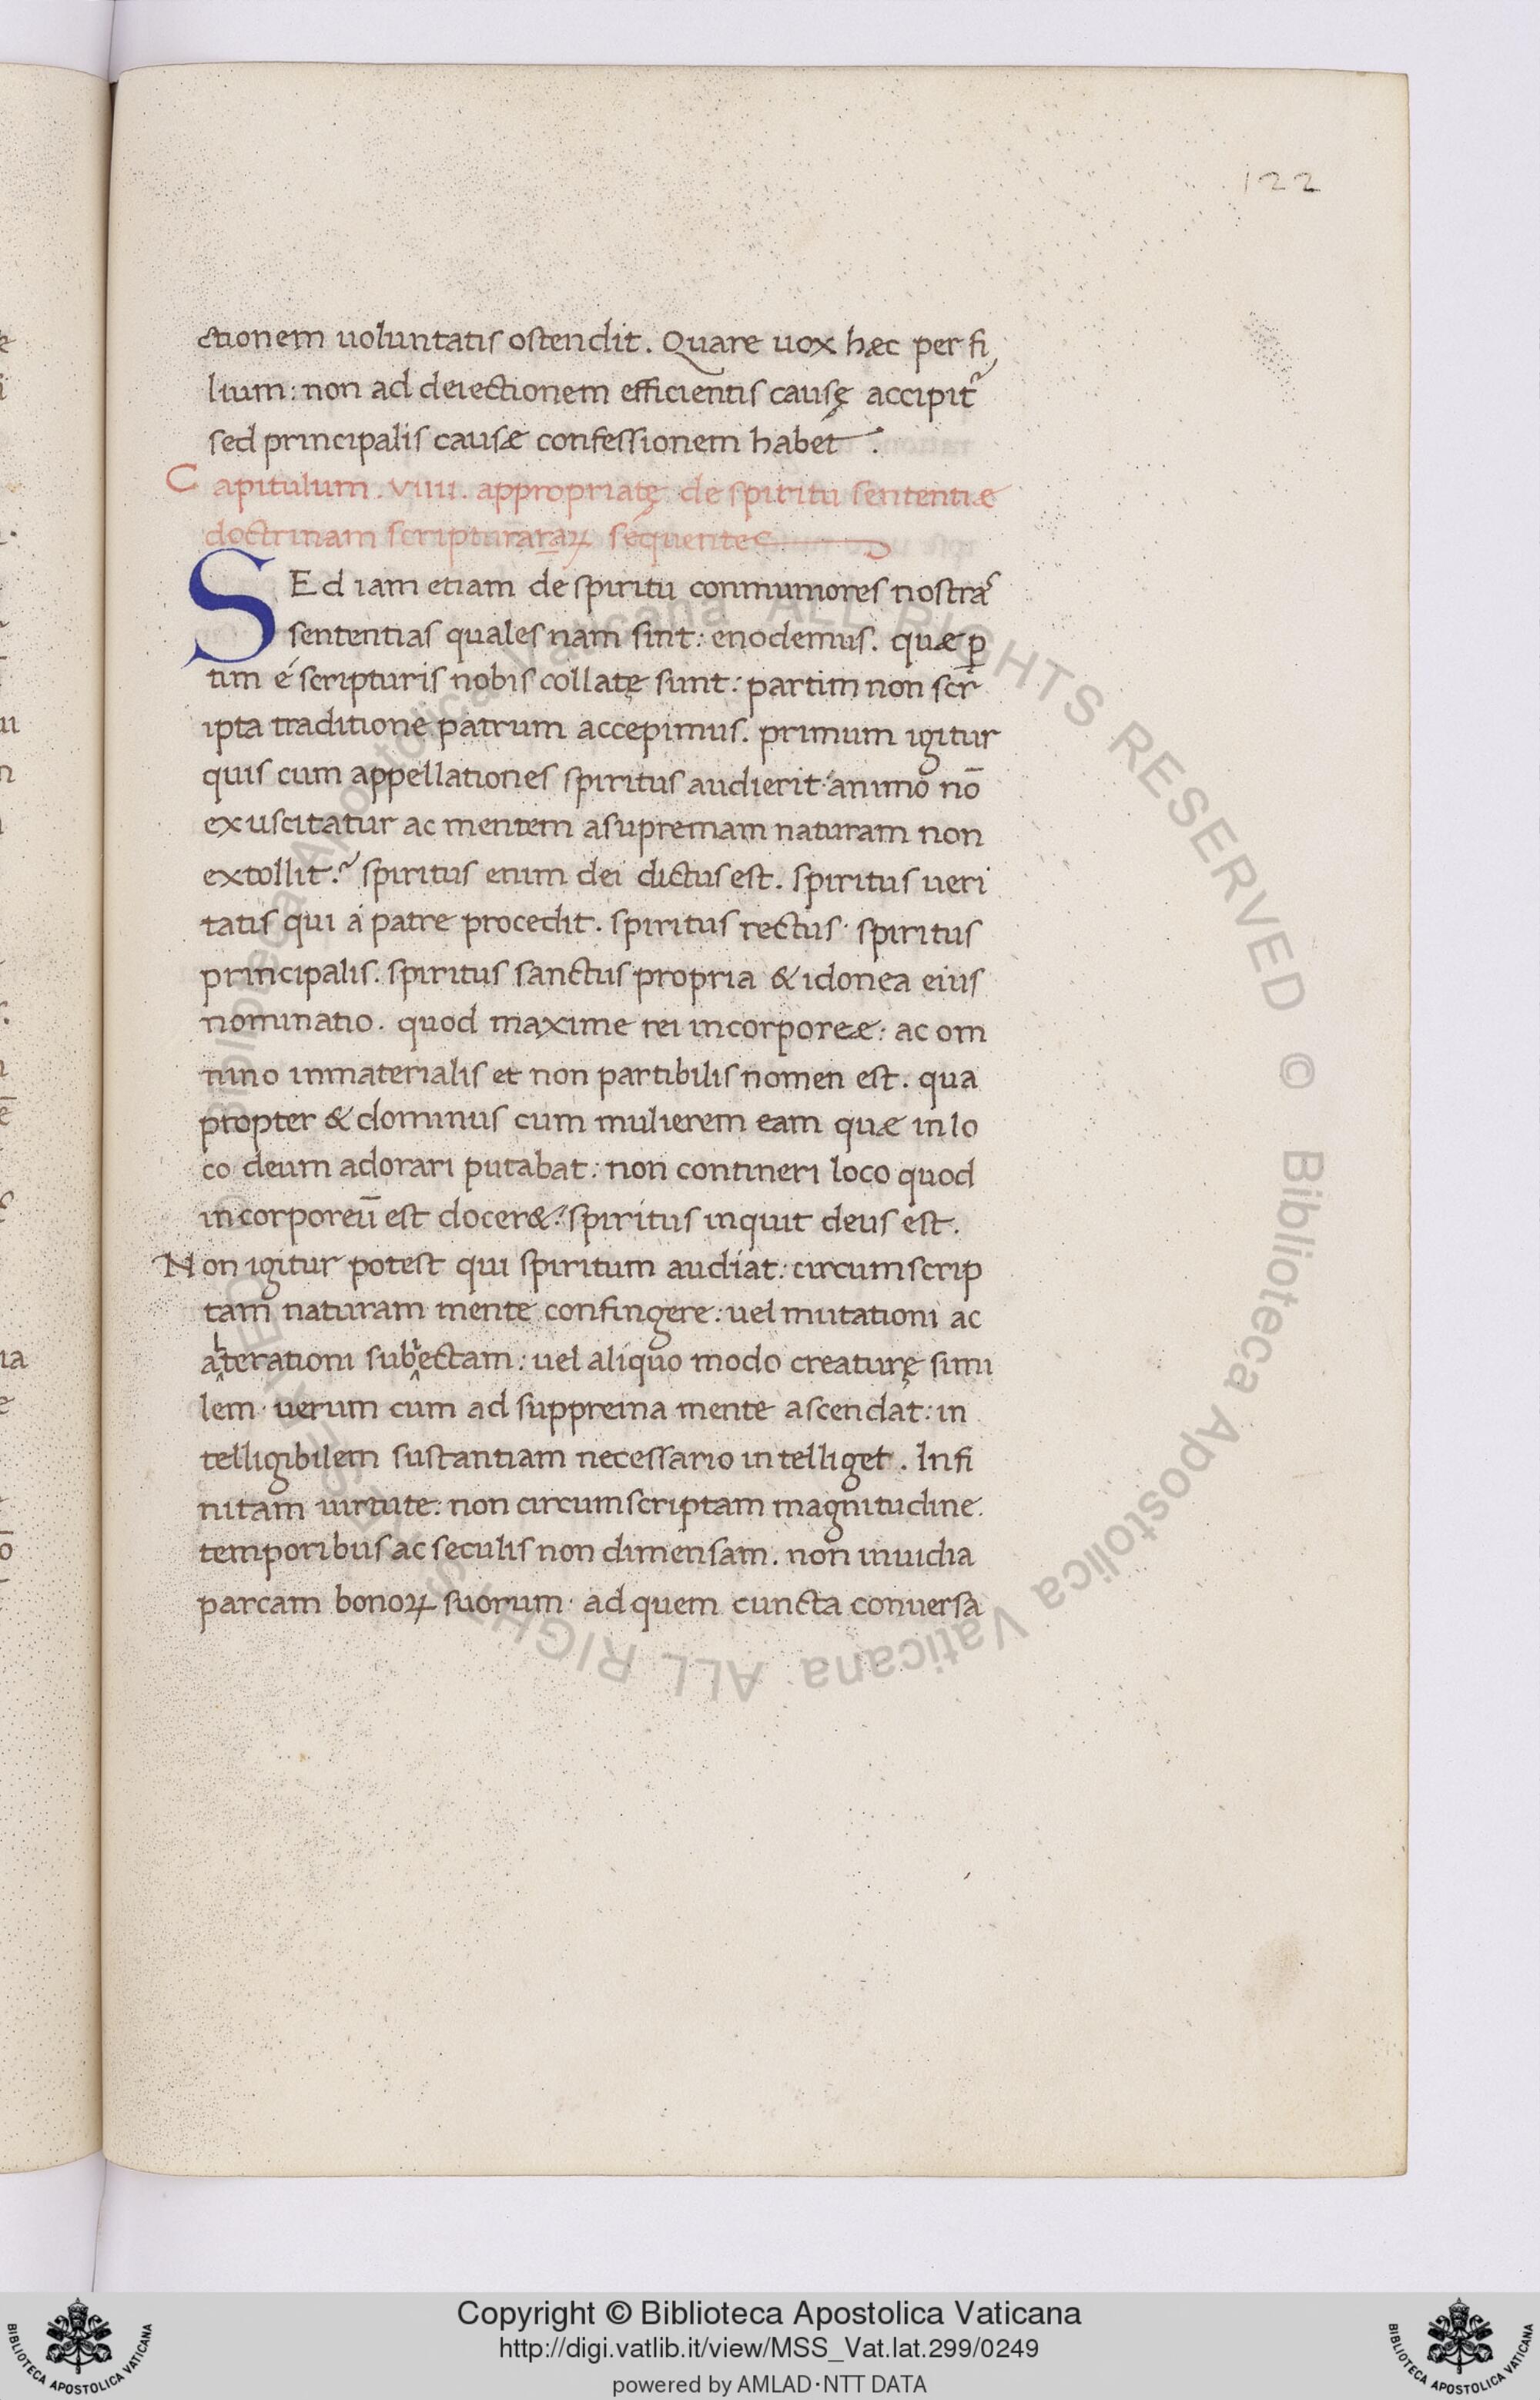 122
ctionem uoluntatis ostendit. Quare uox hæc per fi
lium: non ad deiectionem efficientis causę accipit᷑
sed principalis causæ confessionem habet.
Capitulum. viiii. appropriatę de spiritu sententiæ
doctrinam scripturaraꝝ sequentes
SEd iam etiam de spiritu conmuniores nostras
sententias quales nam sint: enodemus. quæ ꝑ
tim é scripturis nobis collatę sunt: partim non scr
ipta traditione patrum accepimus. primum igitur
quis cum appellationes spiritus audierit: animo nō
exuscitatur ac mentem asupremam naturam non
extollit? spiritus enim dei dictus est. spiritus ueri
tatis qui á patre procedit. spiritus rectus. spiritus
principalis. spiritus sanctus propria & idonea eius
nominatio. quod maxime rei incorporeæ: ac om
nino inmaterialis et non partibilis nomen est. qua
propter & dominus cum mulierem eam quæ in lo
co deum adorari putabat: non contineri loco quod
incorporeū est docer&? spiritus inquit deus est.
Non igitur potest qui spiritum audiat: circumscrip
tam naturam mente confingere: uel mutationi ac
alterationi subiectam: uel aliquo modo creaturę simi
lem. uerum cum ad supprema mente ascendat: in
telligibilem sustantiam necessario intelliget. Infi
nitam uirtute: non circumscriptam magnitudine.
temporibus ac seculis non dimensam. non inuidia
parcam bonoꝝ suorum. ad quem cuncta conuersa
© Biblioteca Apostolica Vaticana ALL RIGHTS RESERVED
© Biblioteca Apostolica Vaticana ALL RIGHTS RESERVED
Copyright © Biblioteca Apostolica Vaticana
http://digi.vatlib.it/view/MSS_Vat.lat.299/0249
powered by AMLAD·NTT DATA
BIBLIOTECA APOSTOLICA VATICANA
BIBLIOTECA APOSTOLICA VATICANA